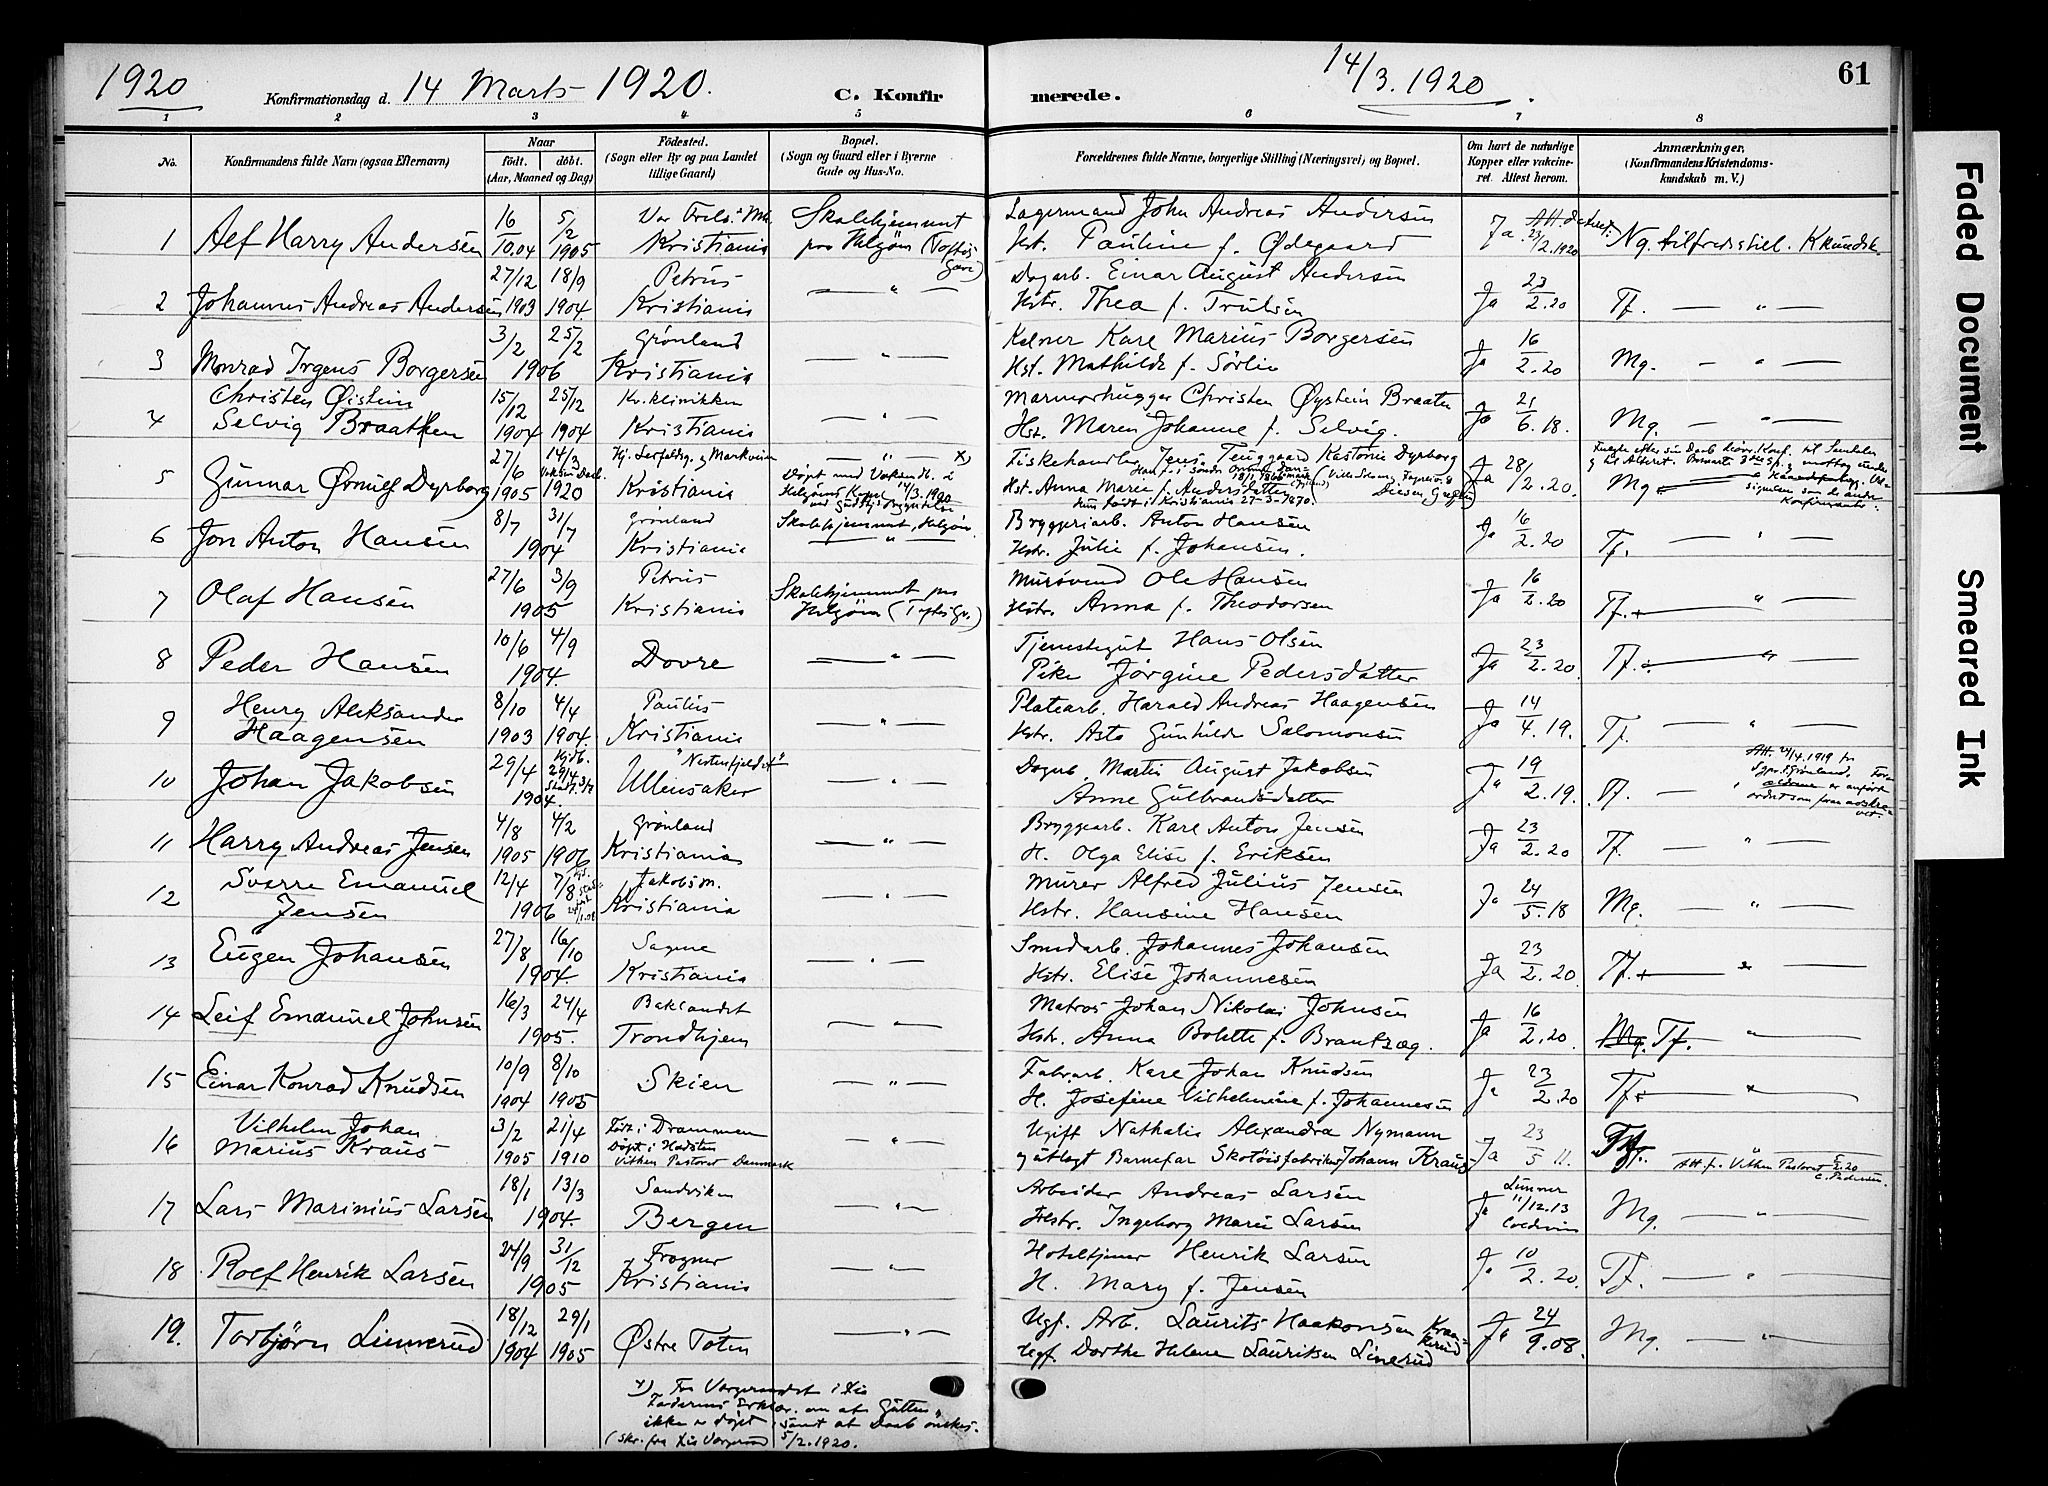 1920
Konfirmationsdag d. 14 Marts 1920.
C. Konfirmerede.
14/3. 1920
61
1 2 3 4 5 6 7 8
No.
Konfirmandens fulde Navn (ogsaa Efternavn)
Naar
født. døbt.
(Aar, Maaned og Dag)
Fødested.
(Sogn eller By og paa Landet
tillige Gaard)
Bopæl.
(Sogn og Gaard eller i Byerne
Gade og Hus-No.
Forældrenes fulde Navne, borgerlige Stilling (Næringsvei) og Bopæl.
Om havt de naturlige
Kopper eller vakcine-
ret. Attest herom.
Anmærkninger,
(Konfirmandens Kristendoms-
kundskab m. V.)
16 5/2 Vor Frels. Skolehjemmet Lagermand John Andreas Andersen
1 Alf Harry Andersen 10.04 1905 Kristiania paa Helgøen (Toftes Gave) Hst. Pauline f. Ødegaard Ja 2.1920 Ng. tilfredsstil. Kkundsk.
27/12 18/9 Petrus Dagarb. Einar August Andersen
2 Johannes Andreas Andersen 1903 1904. Kristiania — " — Hstr. Thea f. Trulsen Ja 23/2.20 Tf. — " —
3/2 25/2 Grønland Kelner Karl Marius Borgersen
3 Monrad Irgens Borgersen 1906 Kristiania — " — Hst. Mathilde f. Sörlie Ja 16/2.20 Mg. — " —
Christen Øistein 15/12 25/12 Kv. klinikken Marmorhugger Christen Øystein Braaten
4 Selvig Braathen 1904 1904 Kristiania — " — Hst. Maren Johanne f. Selvig. Ja 21/6.18. Mg. — " —
27/6 14/3 — " — x) Fiskehandler Jens Kastonie Dyrborg
5 Gunnar Ørnulf Dyrborg 1905 1920 Kristiania Døpt ved Voksendb. i Helgøens 14/3.1920 Hst. Anna Marie f. Andersdatter Ja 28/2.20. Mg
Hun født i Kristiania 27-3-1870.
8/7 31/7 Grønland Skolehjemmet, Helgøen Bryggeriarb. Anton Hansen
6 Jon Anton Hansen 1904 Kristiania — " — Hstr. Julie f. Johansen. Ja 16/2.20 Tf. — " —
27/6 3/9 Petrus Skolehjemmet paa MurSvend Ole Hansen
7 Olaf Hansen 1905 Kristiania Helgøen (Toftes Ga.) Hstr. Anna f. Theodorsen Ja 16/2.20 Tf. — " —
10/6 4/9 Tjenestegut Hans Olsen
8 Peder Hansen 1904. Dovre — " — Pike Jörgine Pedersdatter Ja 23/2.20 Tf. — " —
Henry Aleksander 8/10 4/4 Paulus Platearb. Harald Andreas Haagensen
9 Haagensen 1903 1904. Kristiania — " — Hstr. Asta Gunhilda Salomonsen Ja 14/4.19. Tf. — " —
29/4 Hjdb. 29/4 "Nestenfjeldet" Dagarb. Martin August Jakobsen
10 Johan Jakobsen 1904. Ullensaker — " — Anne Gulbrandsdatter Ja 19/2.19. Tf. —
4/8 4/2 Grønland Bryggearb. Karl Anton Jensen
11 Harry Andreas Jensen 1905 1906 Kristiania — " — H. Olga Elise f. Eriksen Ja 23/2.20 Tf. — " —
Sverre Emanuel 12/4 7/8 Jakobs m. Murer Alfred Julius Jensen
12 Jensen 1906 Kristiania — " — Hstr. Hansine Hansen Ja 24/5.18 Mg. — " —
27/8 16/10 Sagene Smedarb. Johannes Johansen
13 Eugen Johansen 1904. Kristiania — " — Hstr. Elise Johannesen Ja 23/2.20. Tf. — " —
16/3 24/4 Baklandet Matros Johan Nikolai Johnsen
14 Leif Emanuel Johnsen 1905. Trondhjem — " — Hstr. Anna Bolette f. Brantzæg. Ja 16/2.20. Mg. Tf. — " —
10/9 8/10 Fabrarb. Karl Johan Knudsen
15 Einar Konrad Knudsen 1904 1905 Skien — " — H. Josefine Vilhelmine f. Johannesen Ja 23/2.20 Tf. — " —
Vilhelm Johan 3/2 21/4 Født i Drammen Ugift Nathalie Alexandra Nymann
16 Marius Kraus 1905 1910 Døpt i Hadsten Vitten Pastorat Danmark — " — og utlagt Barnefar Skotøisfabrikør Johann Kraus Ja 23/5 11. Att. f. Vitten Pastorat
18/1 13/3 Sandviken Arbeider Andreas Larsen Lunner
17 Lars Marinius Larsen 1904. Bergen — " — Hstr. Ingeborg Marie Larsen Ja 11/12.13 Mg. — " —
24/9 31/12 Frogner Hoteltjener Henrik Larsen
18 Rolf Henrik Larsen 1905 Kristiania — " — H. Mary f. Jensen Ja 10/2.20. Tf. — " —
18/12 29/1 Ugf. Arb. Laurits Haakonsen Kraakerud
19. Torbjörn Linnerud 1904 1905 Østre Toten — " — Ugf. Dorthe Helene Lauritsen Linerud Ja 24/9.08. Mg. — " —
x) Fra Vergeraadet i
Faderens Erklær. om at Gutten
ikke er døpt samt at Daab ønskes.
(Skr. fra Vergeraad 5/2.1920.
Faded Document
Smeared Ink